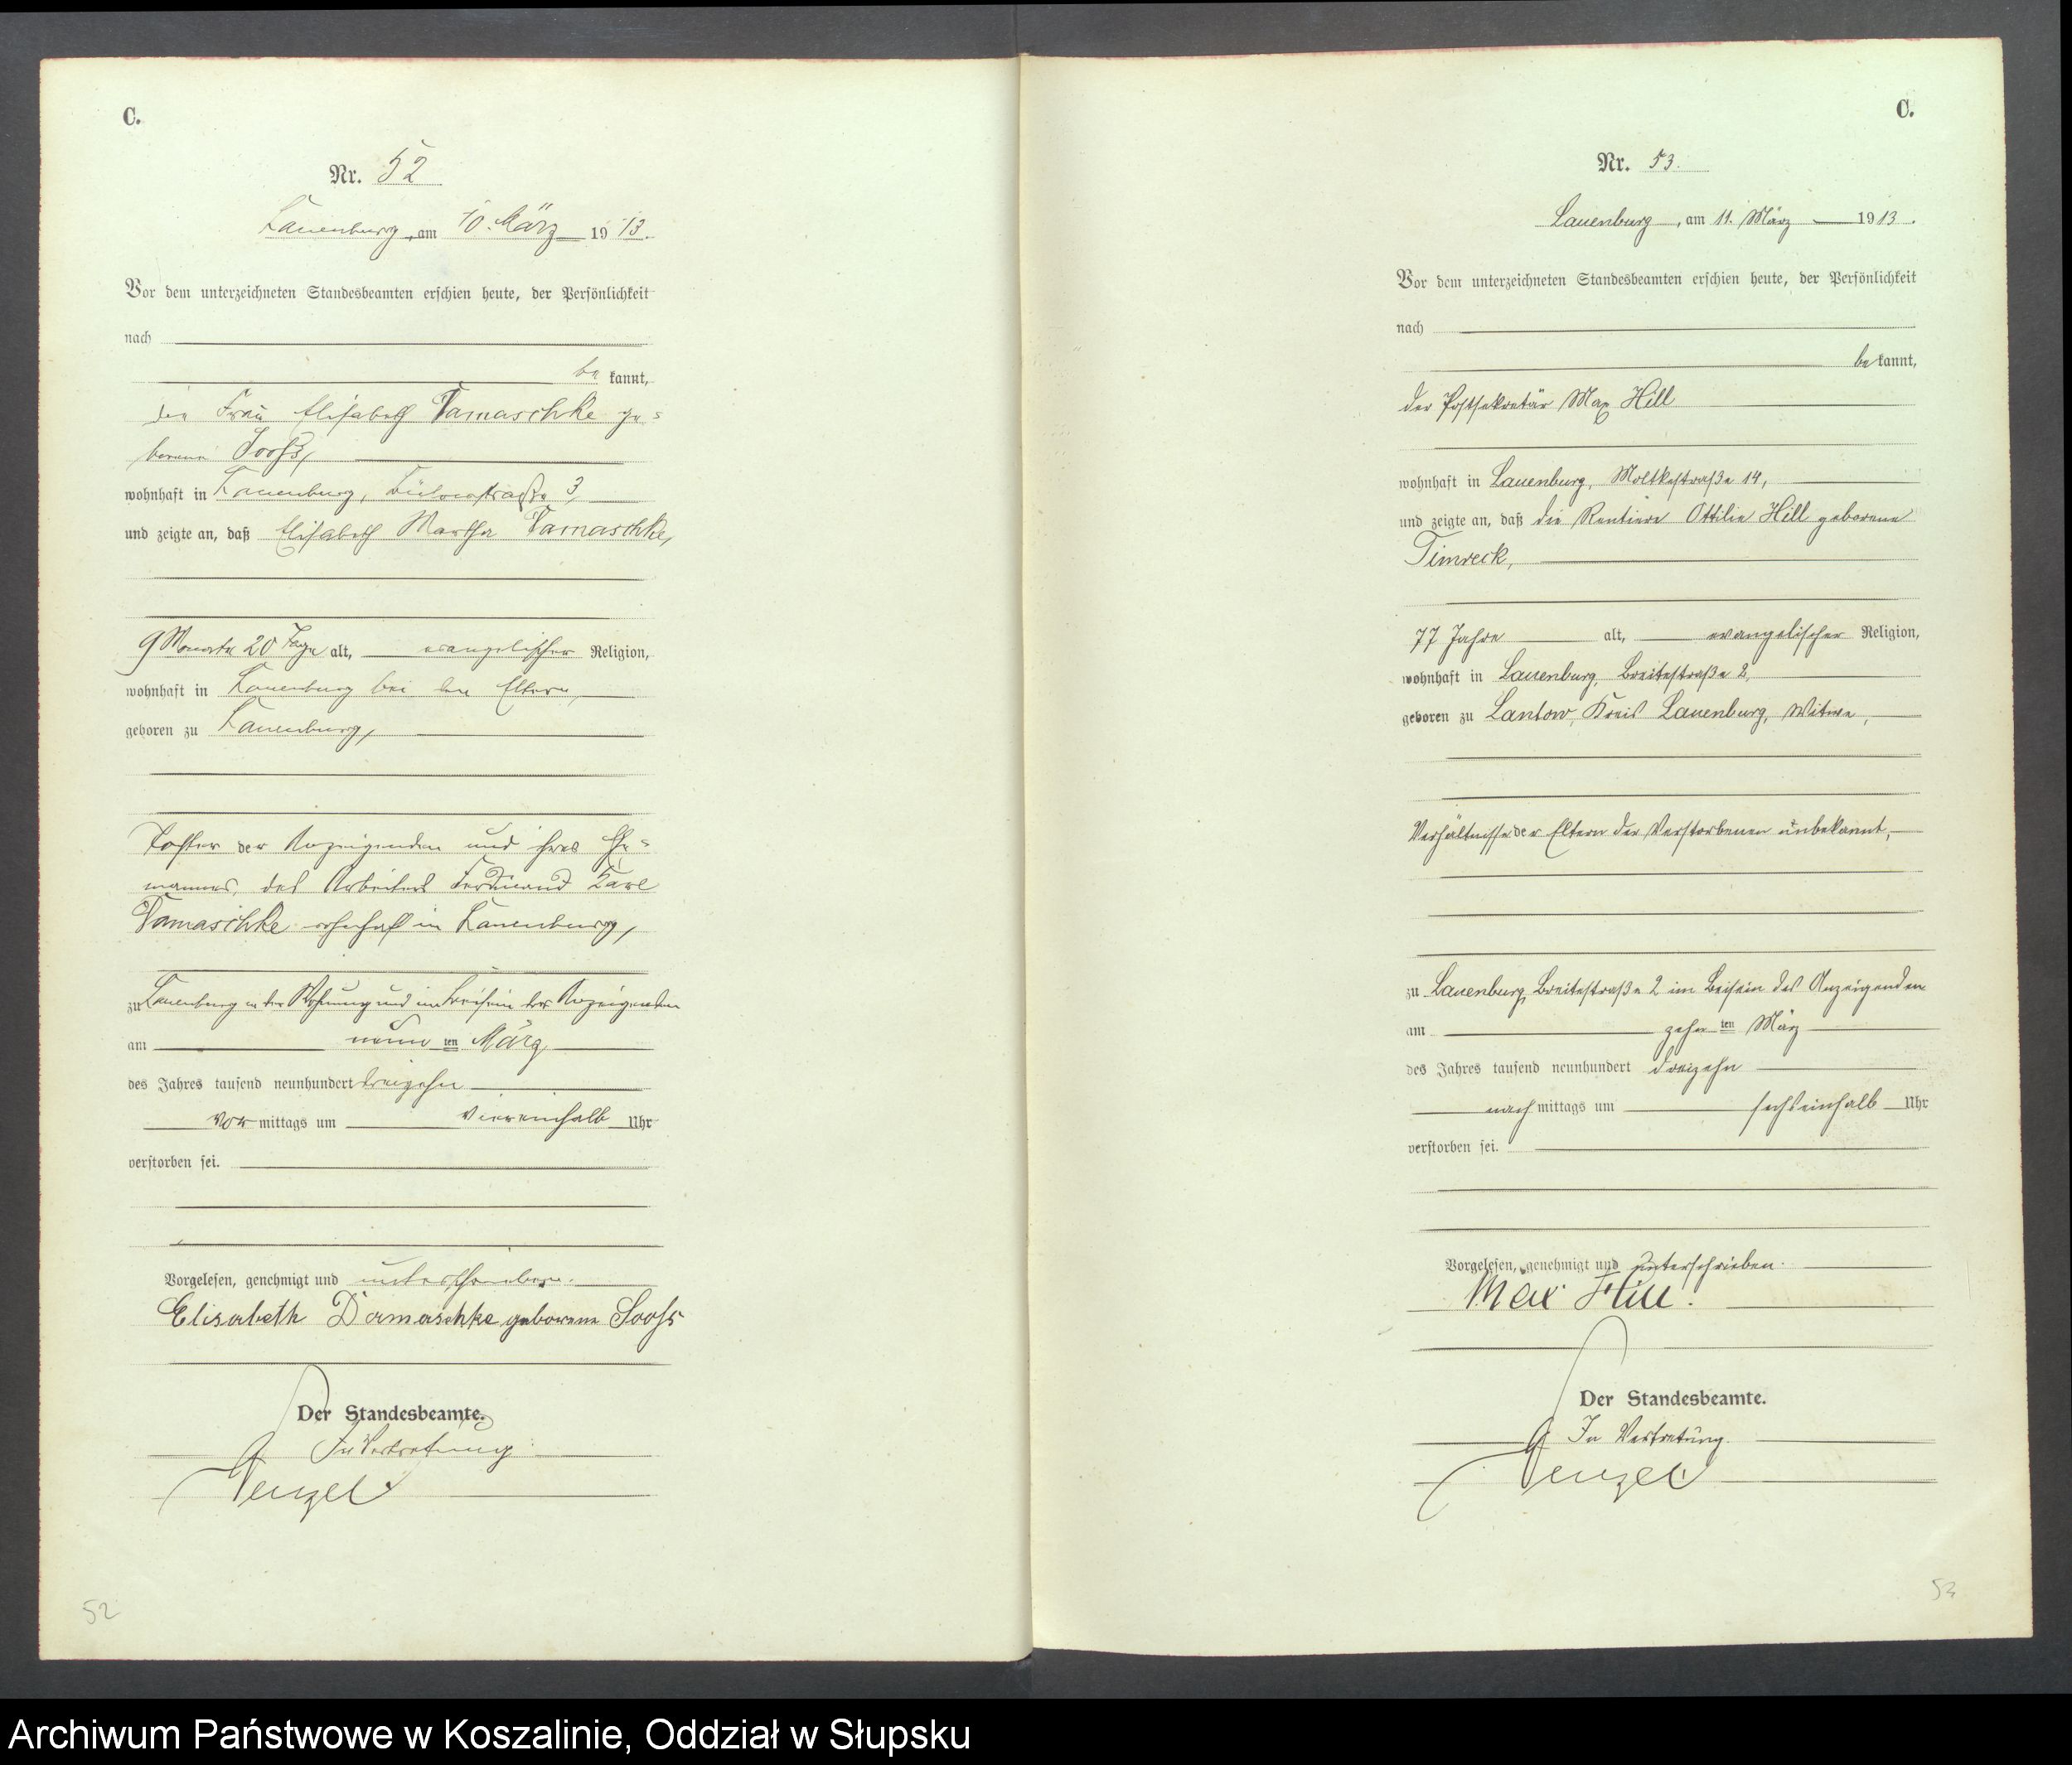 C.
Nr. 52
Lauenburg, am 10. März 1913.
Vor dem unterzeichneten Standesbeamten erschien heute, der Persönlichkeit
nach
bekannt,
die Frau Elisabeth Damaschke ge=
borene Sooß,
wohnhaft in Lauenburg, Bülowstraße 3,
und zeigte an, daß Elisabeth Martha Damaschke,
9 Monate 20 Tage alt, evangelischer Religion,
wohnhaft in Lauenburg bei den Eltern,
geboren zu Lauenburg,
Tochter der Anzeigenden und ihres Ehe=
mannes, des Arbeiters Ferdinand Karl
Damaschke wohnhaft in Lauenburg,
zu Lauenburg in der Wohnung und im Beisein der Anzeigenden
am neunten März
des Jahres tausend neunhundert dreizehn
vormittags um viereinhalb Uhr
verstorben sei.
Vorgelesen, genehmigt und unterschrieben.
Elisabeth Damaschke geborene Sooß
Der Standesbeamte.
In Vertretung.
Wenzel
52
C.
Nr. 53.
Lauenburg, am 11. März 1913.
Vor dem unterzeichneten Standesbeamten erschien heute, der Persönlichkeit
nach
bekannt,
der Postsekretär Max Hill
wohnhaft in Lauenburg, Moltkestraße 14,
und zeigte an, daß die Rentiere Ottilie Hill geborene
Timreck,
77 Jahre alt, evangelischer Religion,
wohnhaft in Lauenburg, Breitestraße 2,
geboren zu Lantow, Kreis Lauenburg, Witwe,
Verhältnisse der Eltern der Verstorbenen unbekannt,
zu Lauenburg, Breitestraße 2 im Beisein des Anzeigenden
am zehnten März
des Jahres tausend neunhundert dreizehn
nachmittags um sechseinhalb Uhr
verstorben sei.
Vorgelesen, genehmigt und unterschrieben.
Max Hill.
Der Standesbeamte.
In Vertretung.
Wenzel
53
Archiwum Państwowe w Koszalinie, Oddział w Słupsku